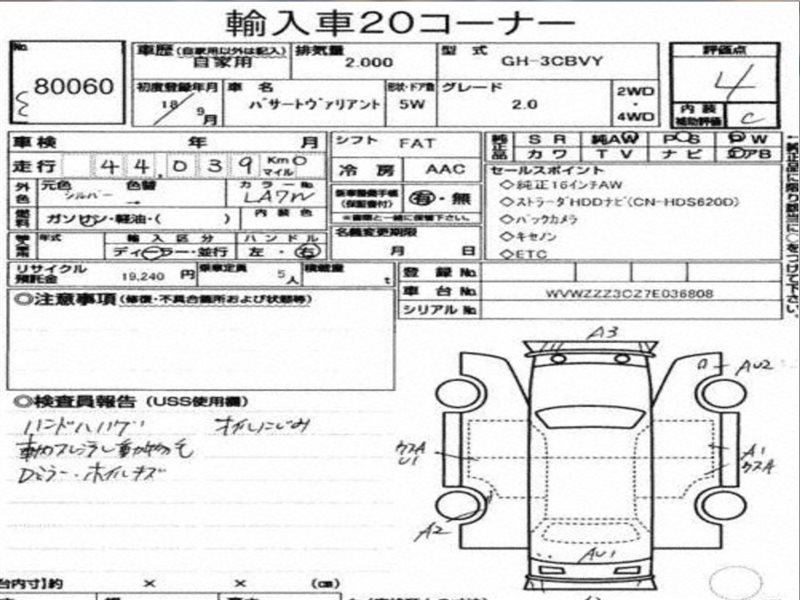 輸入車20コーナー
No. 80060
車歴(自家用以外は記入) 自家用
排気量 2.000
型式 GH-3CBVY
評価点 4
初度登録年月 18/9月
車名 パサートヴァリアント
形状・ドア数 5W
グレード 2.0
2WD・4WD
内装補助評価 C
車検 年 月
シフト FAT
純正品 SR 純AW PS PW
カワ TV ナビ エアB
走行 44,039 Km マイル
冷房 AAC
セールスポイント
◇純正16インチAW
◇ストラーダHDDナビ(CN-HDS620D)
◇バックカメラ
◇キセノン
◇ETC
外色 元色 シルバー 色替 →
カラーNo. LA7W
(保証書付) 有・無
燃料 ガソリン・軽油・( )
内装色
名義変更期限 月 日
年式
輸入区分 ディーラー・並行
ハンドル 左・右
リサイクル預託金 19,240円
乗車定員 5人
積載量 t
登録No.
車台No. WVWZZZ3CZ7E036808
シリアルNo.
◎注意事項(修復・不具合箇所および状態等)
◎検査員報告(USS使用欄)
オイルにじみ
Dミラー・ホイルキズ
A3
AU2
A1
A2
AU1
台内寸】約 × × (cm)